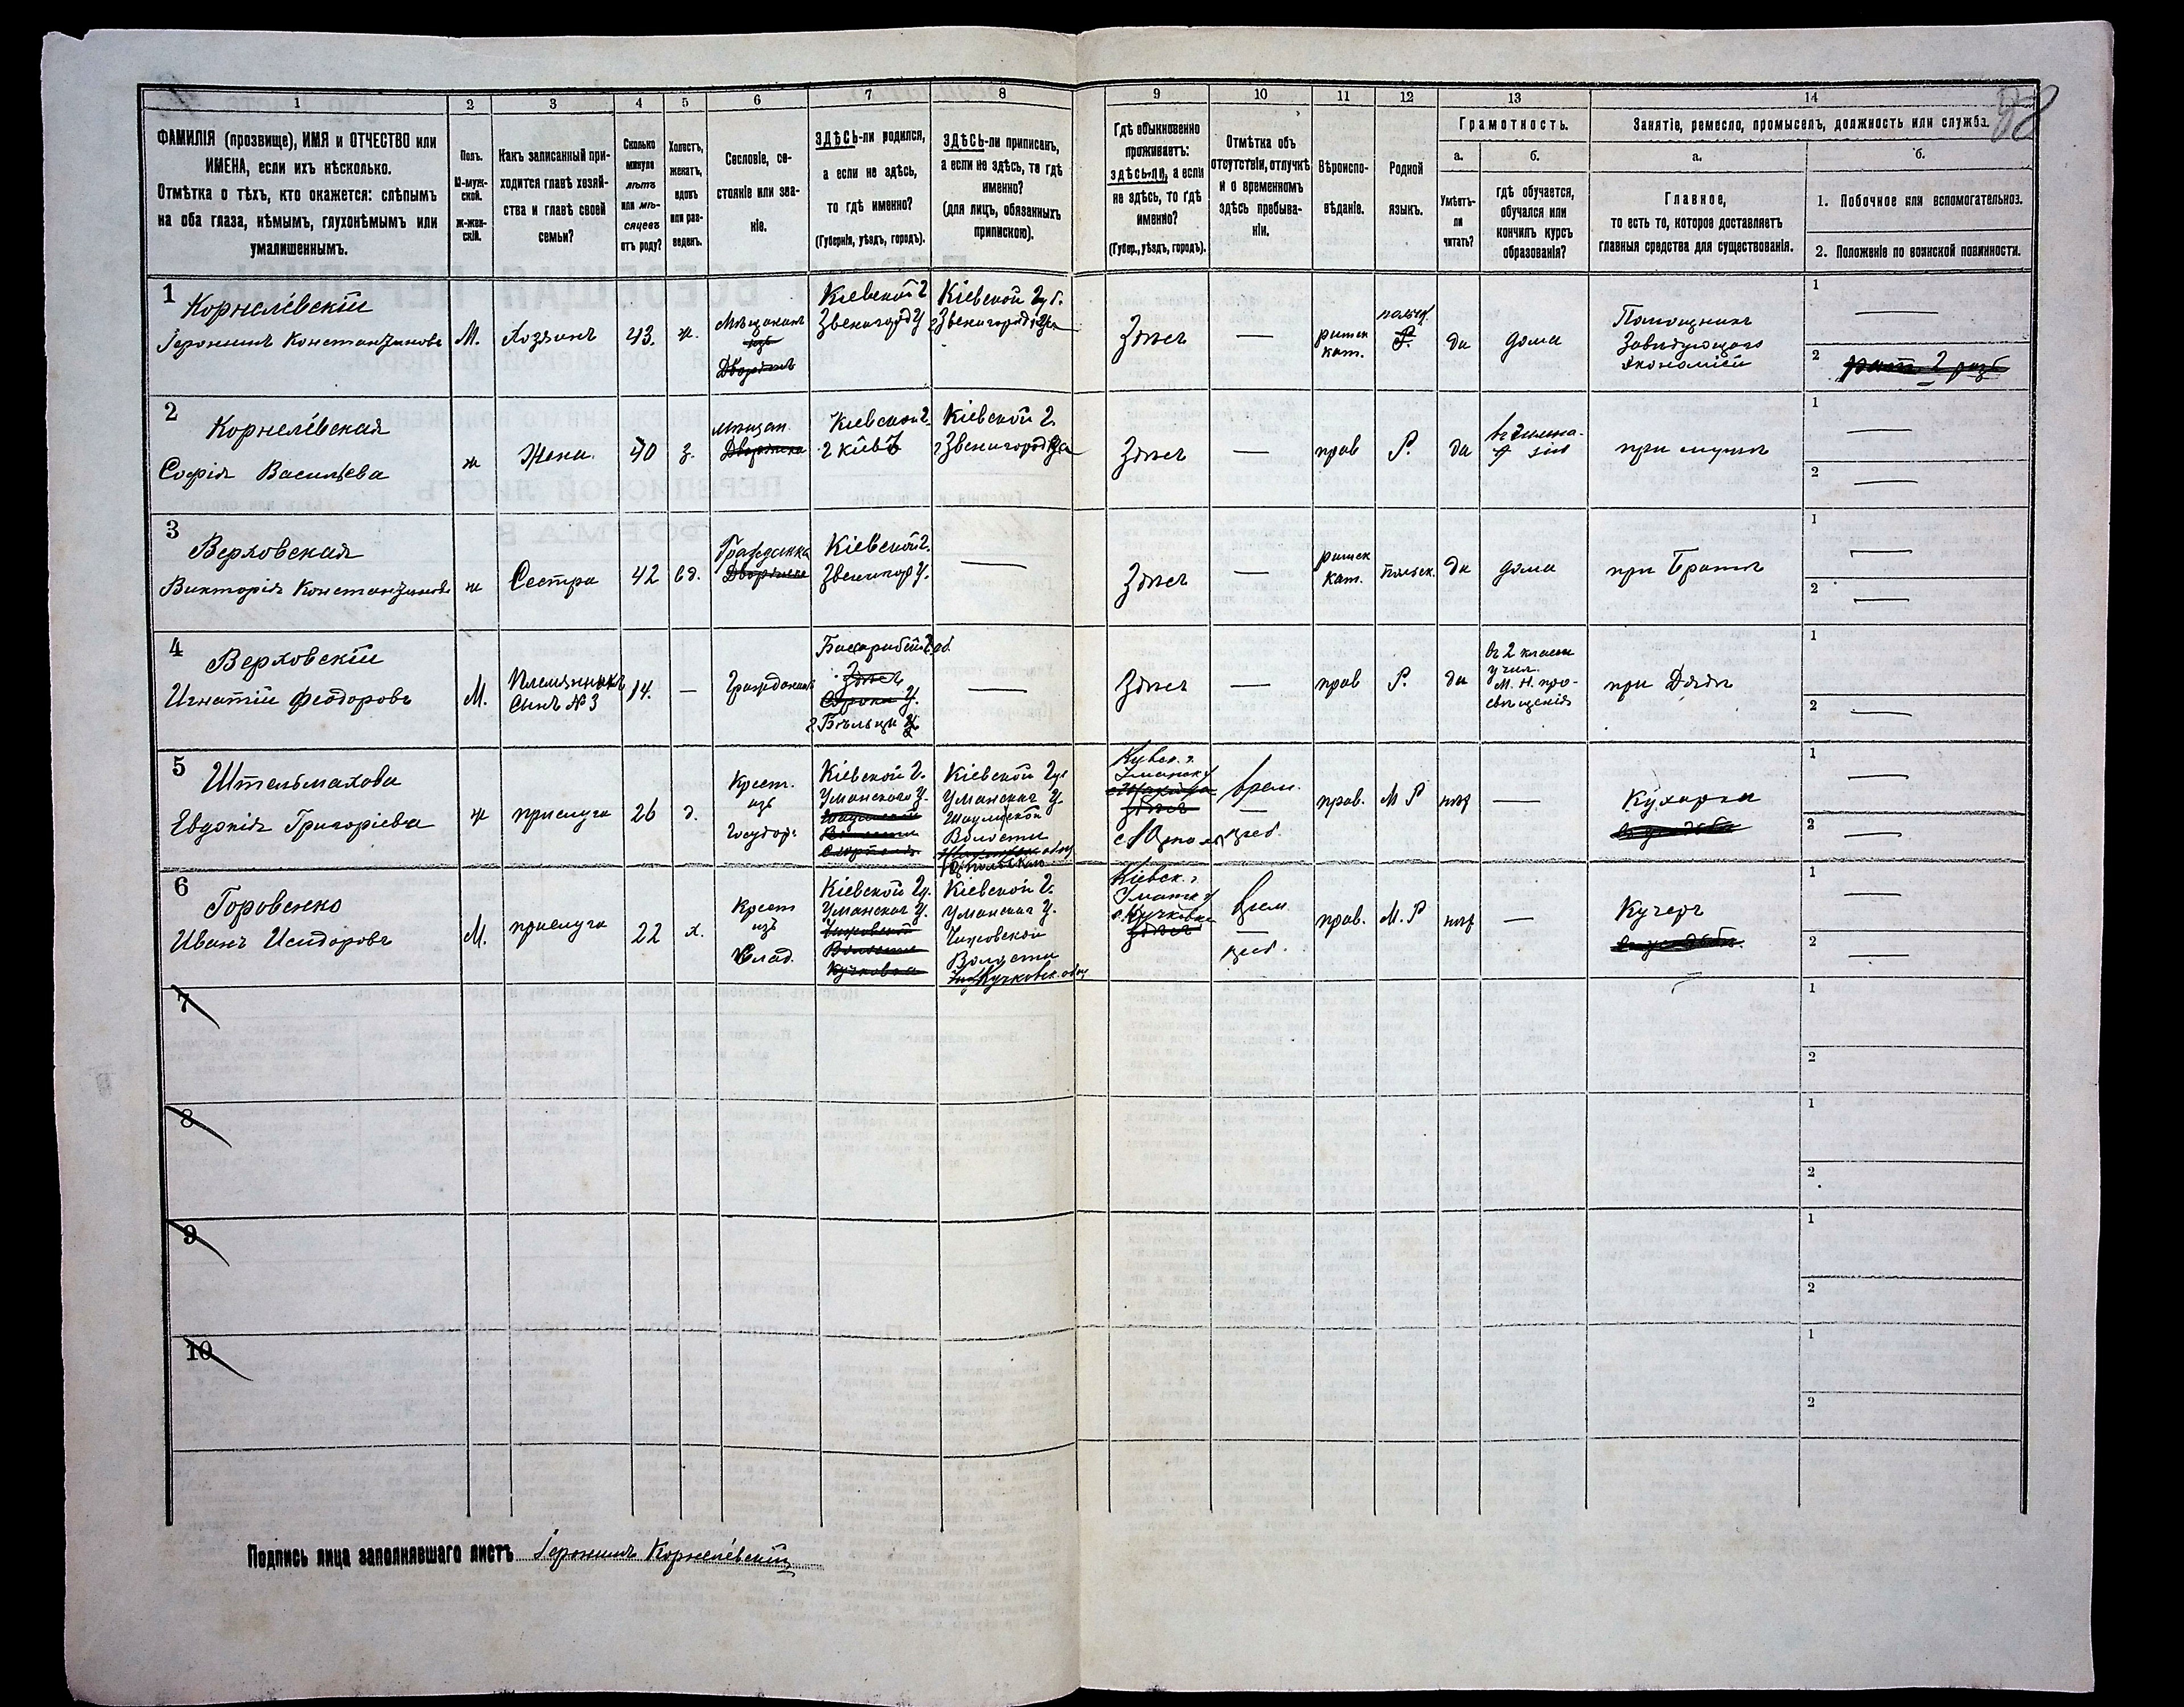 1 2 3 4 5 6 7 8 9 10 11 12 13 14
88
ФАМИЛІЯ (прозвище), ИМЯ и ОТЧЕСТВО или
ИМЕНА, если ихъ нѣсколько.
Отмѣтка о тѣхъ, кто окажется: слѣпымъ
на оба глаза, нѣмымъ, глухонѣмымъ или
умалишеннымъ.
Полъ.
М-муж-
ской.
Ж-жен-
скій.
Какъ записанный при-
ходится главѣ хозяй-
ства и главѣ своей
семьи?
Сколько
минуло
лѣтъ
или мѣ-
сяцевъ
отъ роду?
Холостъ,
женатъ,
вдовъ
или раз-
веденъ.
Сословіе, со-
стояніе или зва-
ніе.
ЗДѢСЬ-ли родился,
а если не здѣсь,
то гдѣ именно?
(Губернія, уѣздъ, городъ).
ЗДѢСЬ-ли приписанъ,
а если не здѣсь, то гдѣ
именно?
(для лицъ, обязанныхъ
припискою).
Гдѣ обыкновенно
проживаетъ:
здѣсь-ли, а если
не здѣсь, то гдѣ
именно?
(Губер., уѣздъ, городъ).
Отмѣтка объ
отсутствіи, отлучкѣ
и о временномъ
здѣсь пребыва-
ніи.
Вѣроиспо-
вѣданіе.
Родной
языкъ.
Грамотность.
а.
Умѣетъ-
ли
читать?
б.
гдѣ обучается,
обучался или
кончилъ курсъ
образованія?
Занятіе, ремесло, промыселъ, должность или служба.
а.
Главное,
то есть то, которое доставляетъ
главныя средства для существованія.
б.
1. Побочное или вспомогательное.
2. Положеніе по воинской повинности.
1
Корнелевскій
Іеронимъ Константиновъ
М.
Хозяинъ
43.
ж.
Мѣщанинъ
Дворянинъ
Кіевской г
Звенигород у
Кіевской Губ.
Здѣсь
—
римск
кат.
польск.
Р.
да
дома
Помощникъ
Завѣдующаго
Экономіей
1 —
2 рат. 2 разр
2
Корнелевская
Софія Васильева
ж
Жена.
40
з.
мѣщан.
Дворянка
Кіевской г.
г Кіевъ
Кіевской г.
Здѣсь
—
прав
Р.
да
въ Гимна-
зіи
при мужѣ
1 —
2 —
3
Верховская
Викторія Константинова
ж
Сестра
42
вд.
Гражданка
Дворянка
Кіевской г.
Звенигор у.
—
Здѣсь
—
римск
кат.
Польск.
да
дома
при Братѣ
1 —
2 —
4
Верховскій
Игнатій Феодоровъ
М.
Племянникъ
Сынъ №3
14.
—
Гражданинъ
Здѣсь
Сороки у.
г. Бѣльцы у.
—
Здѣсь
—
прав
Р.
да
въ 2 класн
учил.
М. Н. про-
свѣщенія
при Дядѣ
1 —
2 —
5
Штельмахова
Евдокія Григоріева
ж
прислуга
26
д.
Крест.
изъ
Государ.
Кіевской г.
Уманскаго у.
Кіевской Губ
Уманскаг у.
Волости
Здѣсь
врем.
—
преб.
прав.
М Р
нѣт
—
Кухарка
1 —
2 —
6
Горовенко
Иванъ Исидоровъ
М.
прислуга
22
х.
Крест
изъ
Влад.
Кіевской Гу.
Уманскаг у.
Волости
Кучковка
Кіевской г.
Уманскаг у.
Волости
Кучковск. общ
Кіевск. г.
Уманск у
с. Кучковка
Здѣсь
врем.
—
преб.
прав.
М. Р
нѣт
—
Кучеръ
1 —
2 —
7
1
2
8
1
2
9
1
2
10
1
2
Подпись лица заполнявшаго листъ Іеронимъ Корнелевскій